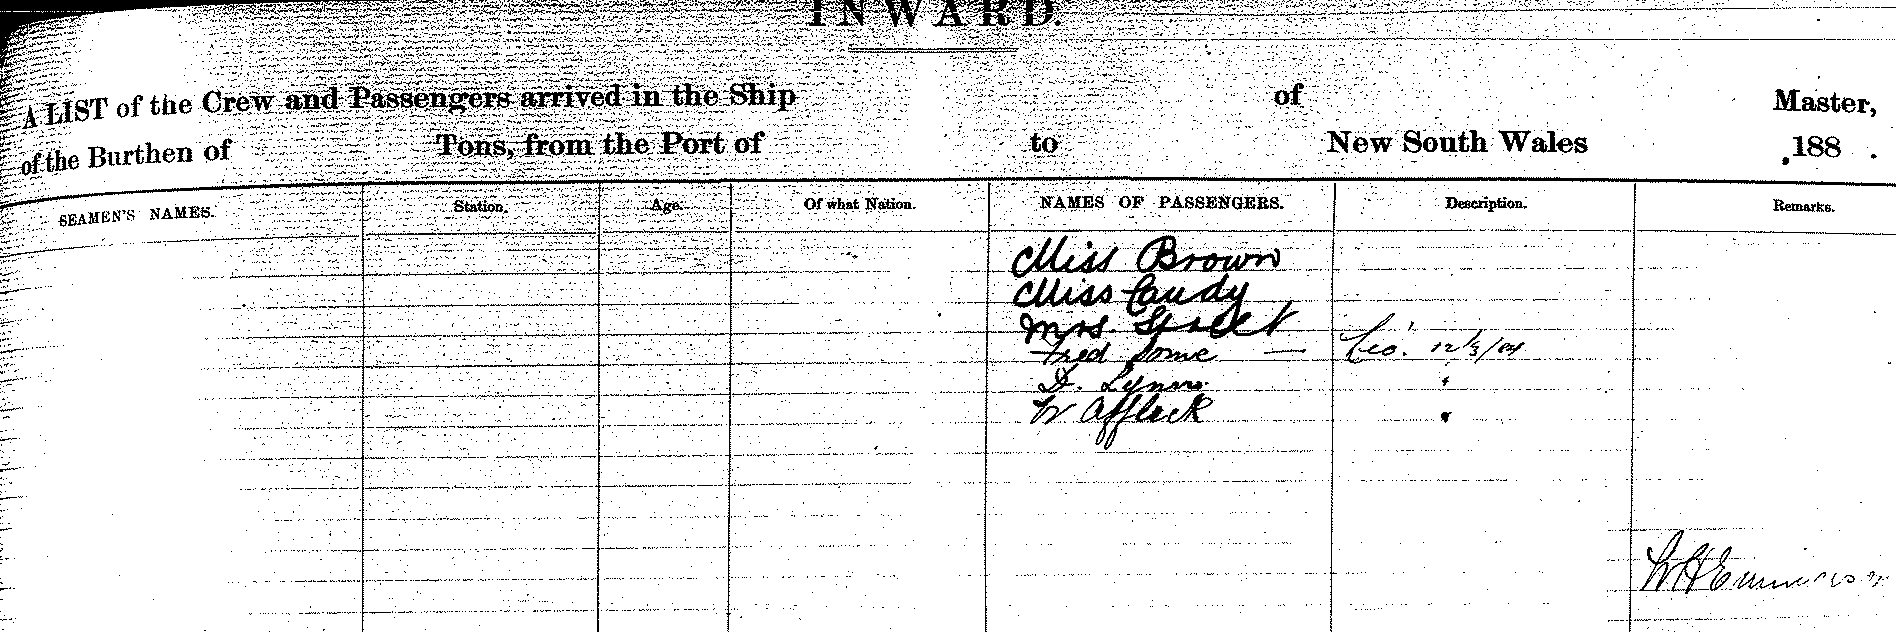 INWARD.
A LIST of the Crew and Passengers arrived in the Ship of Master,
of the Burthen of Tons, from the Port of to New South Wales ,188 .
SEAMEN'S NAMES. Station. Age. Of what Nation. NAMES OF PASSENGERS. Description. Remarks.
Miss Brown
Miss Caudy
Mrs. Street
Fred — 12/3/04
D. "
W Affleck "
W H